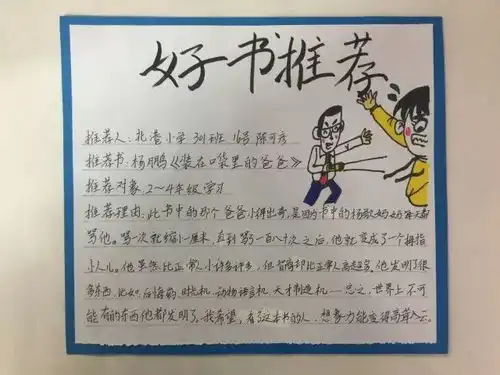 好书推荐
推荐人：北滘小学 301班 16号 陈可彦
推荐书：杨鹏《装在口袋里的爸爸》
推荐对象：2～4年级学习
推荐理由：此书中的那个爸爸小得出奇，是因为书中的杨歌妈妈每天都
骂他。骂一次就缩小一厘米，直到骂了一百八十次之后，他就变成了一个拇指
小人儿。他虽然比正常人小许多许多，但智商却比正常人高超多。他发明了很
多东西，比如：后悔药、时光机、动物语言机、天才制造机……总之，世界上不可
能有的东西他都发明了。我希望，看了这本书的人，想象力能变得高耸入云。